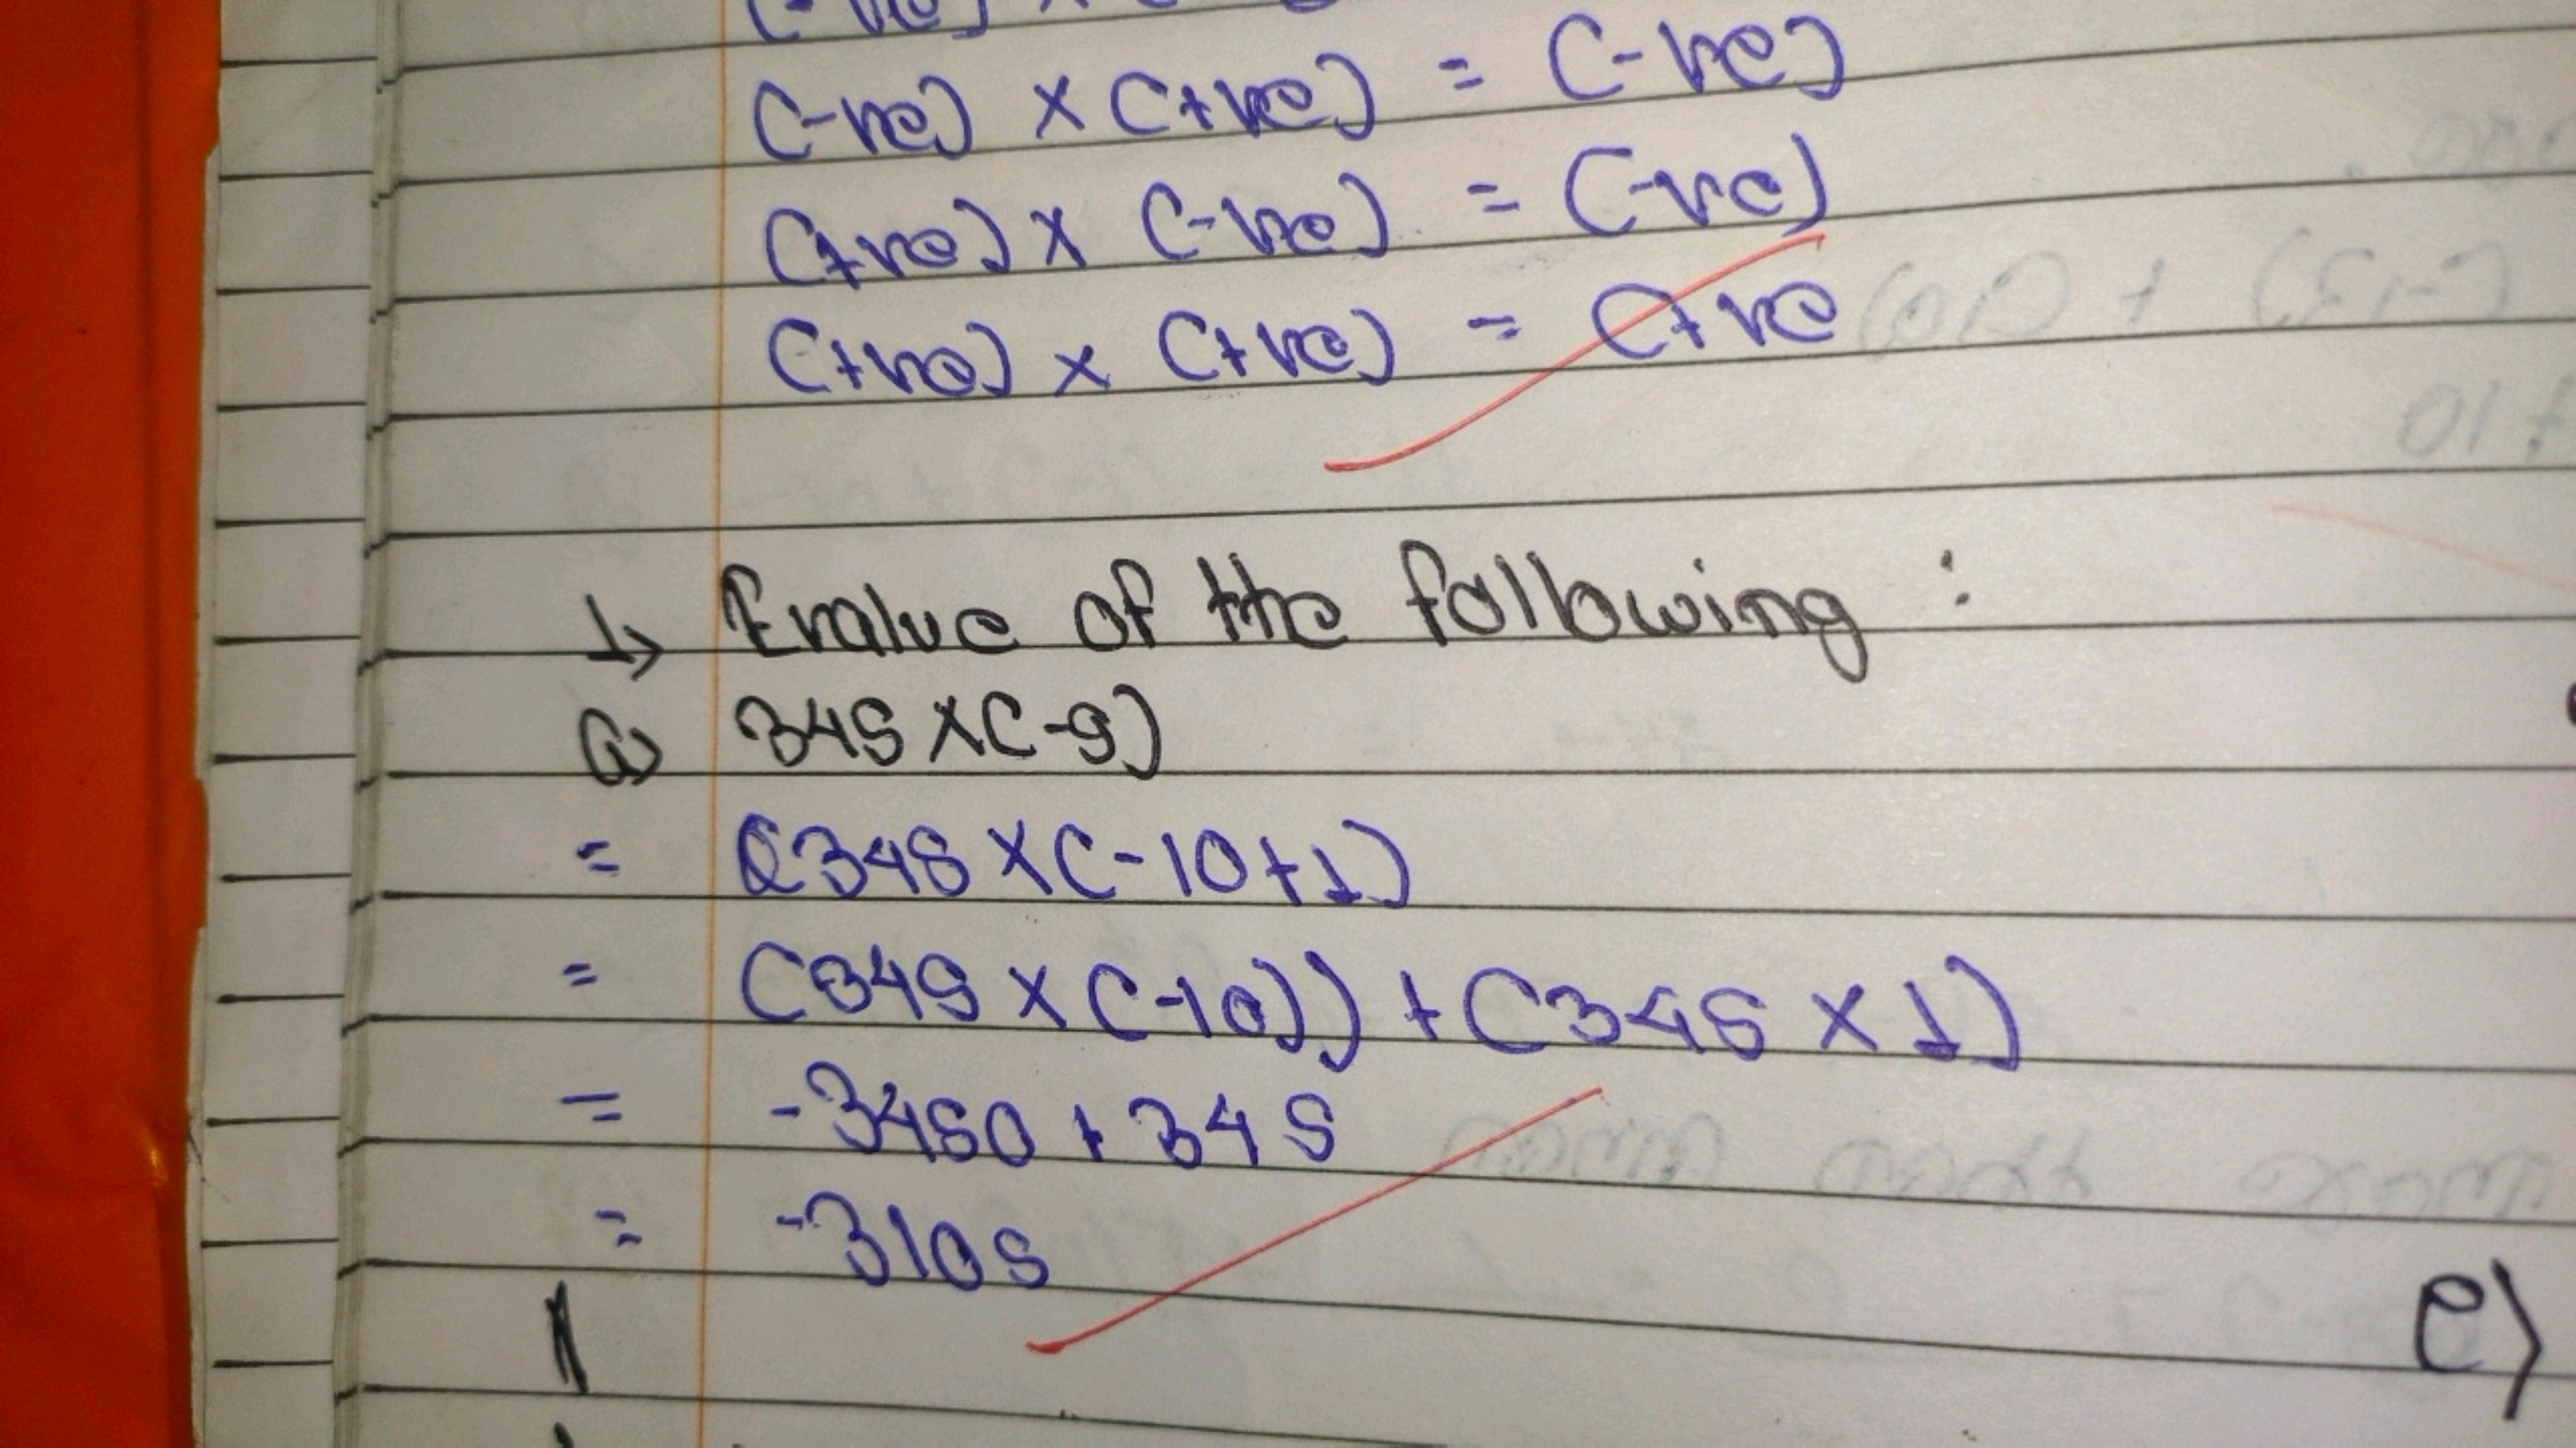 (-ve) × (+ve) = (-ve)
(+ve) × (-ve) = (-ve)
(+ve) × (+ve) = (+ve
1) Evalue of the following :
a) 345 × (-9)
= (345 × (-10+1)
= (345 × (-10)) + (345 × 1)
= -3450 + 345
= -3105
e)